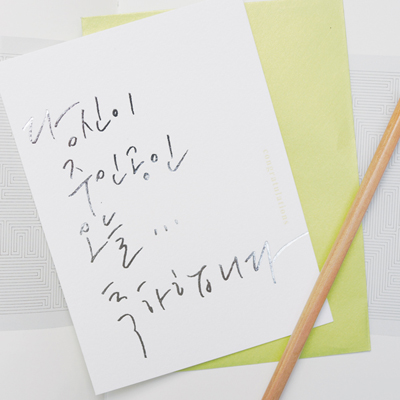 당신이
주인공인
오늘...
축하합니다